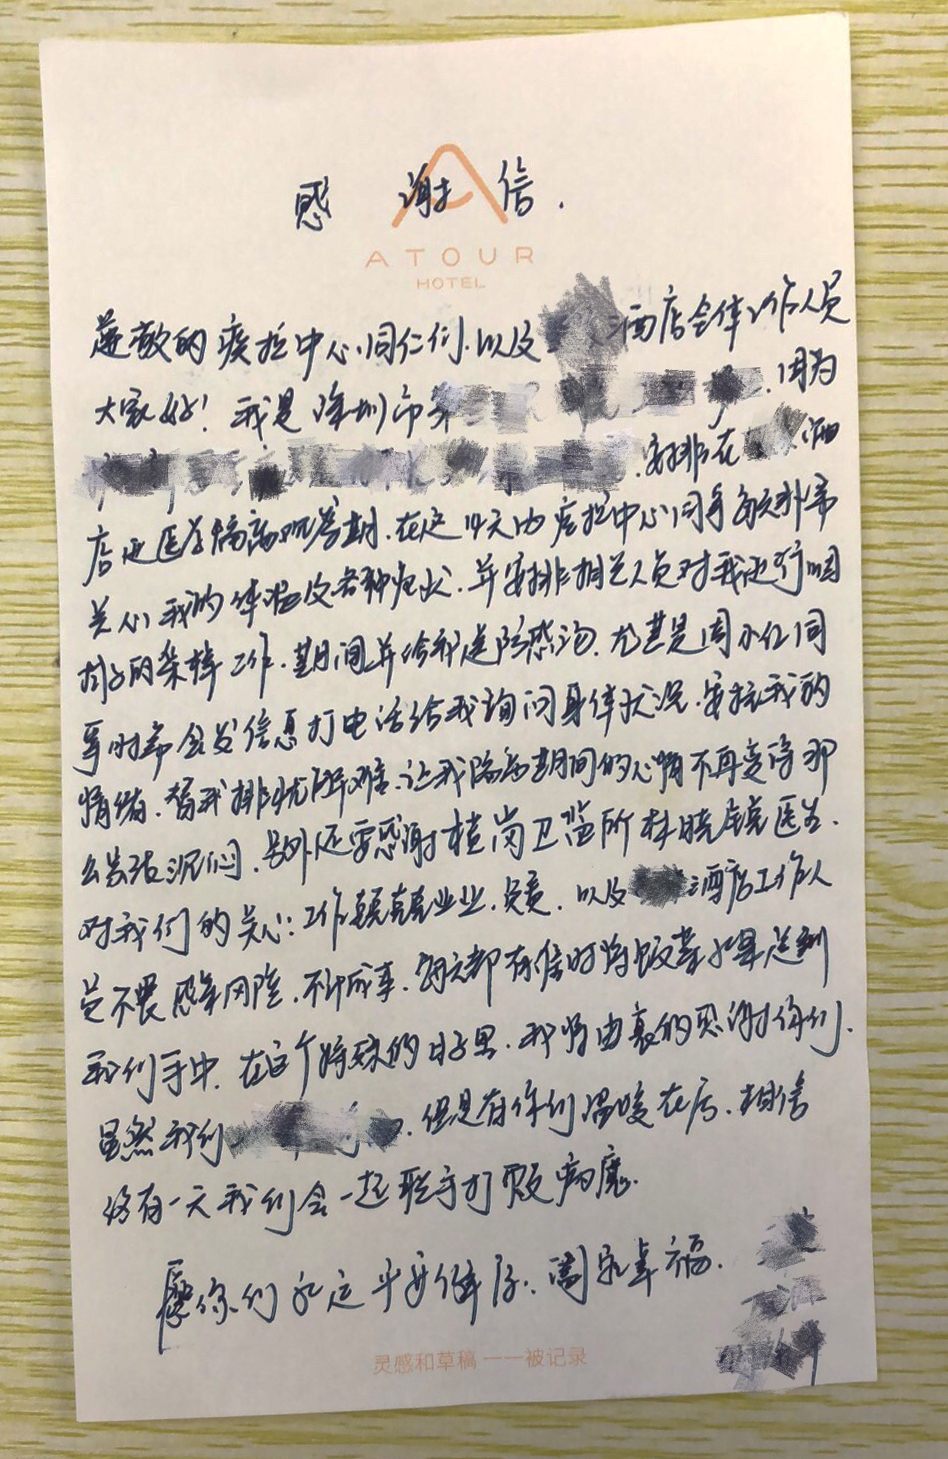 感谢信.
ATOUR
HOTEL
尊敬的疾控中心同仁们.以及酒店全体工作人员
大家好!我是深圳市.因为
.安排在酒
店进医学隔离观察期.在这14天内疾控中心同事每天非常
关心我的体温及各种症状.并安排相关人员对我进行咽
拭子的采样工作.期间并给邮送防感汤.尤其是周小仁同
事时常会发信息打电话给我询问身体状况.安抚我的
情绪.替我排忧解难.让我隔离期间的心情不再变得那
么枯燥沉闷.另外还要感谢横岗卫监所林晓虎医生.
对我们的关心:工作兢兢业业.负责.以及酒店工作人
员不畏感染风险.不计成本.每天都有准时将饭菜水果送到
我们手中.在这个特殊的日子里.我将由衷的感谢你们.
虽然我们.但是有你们温暖在后.相信
终有一天我们会一起联手打败病魔.
愿你们永远平安健康.阖家幸福.
灵感和草稿 一一被记录